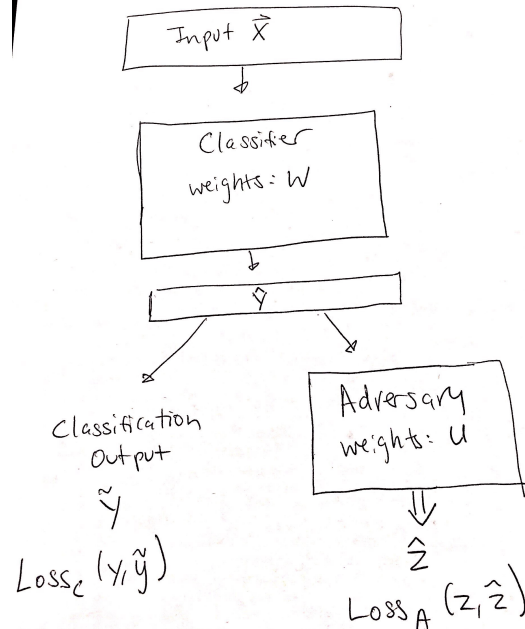 Input X⃗
Classifier
weights: W
ŷ
Classification
Output
ỹ
Loss_C (y, ỹ)
Adversary
weights: U
ẑ
Loss_A (z, ẑ)